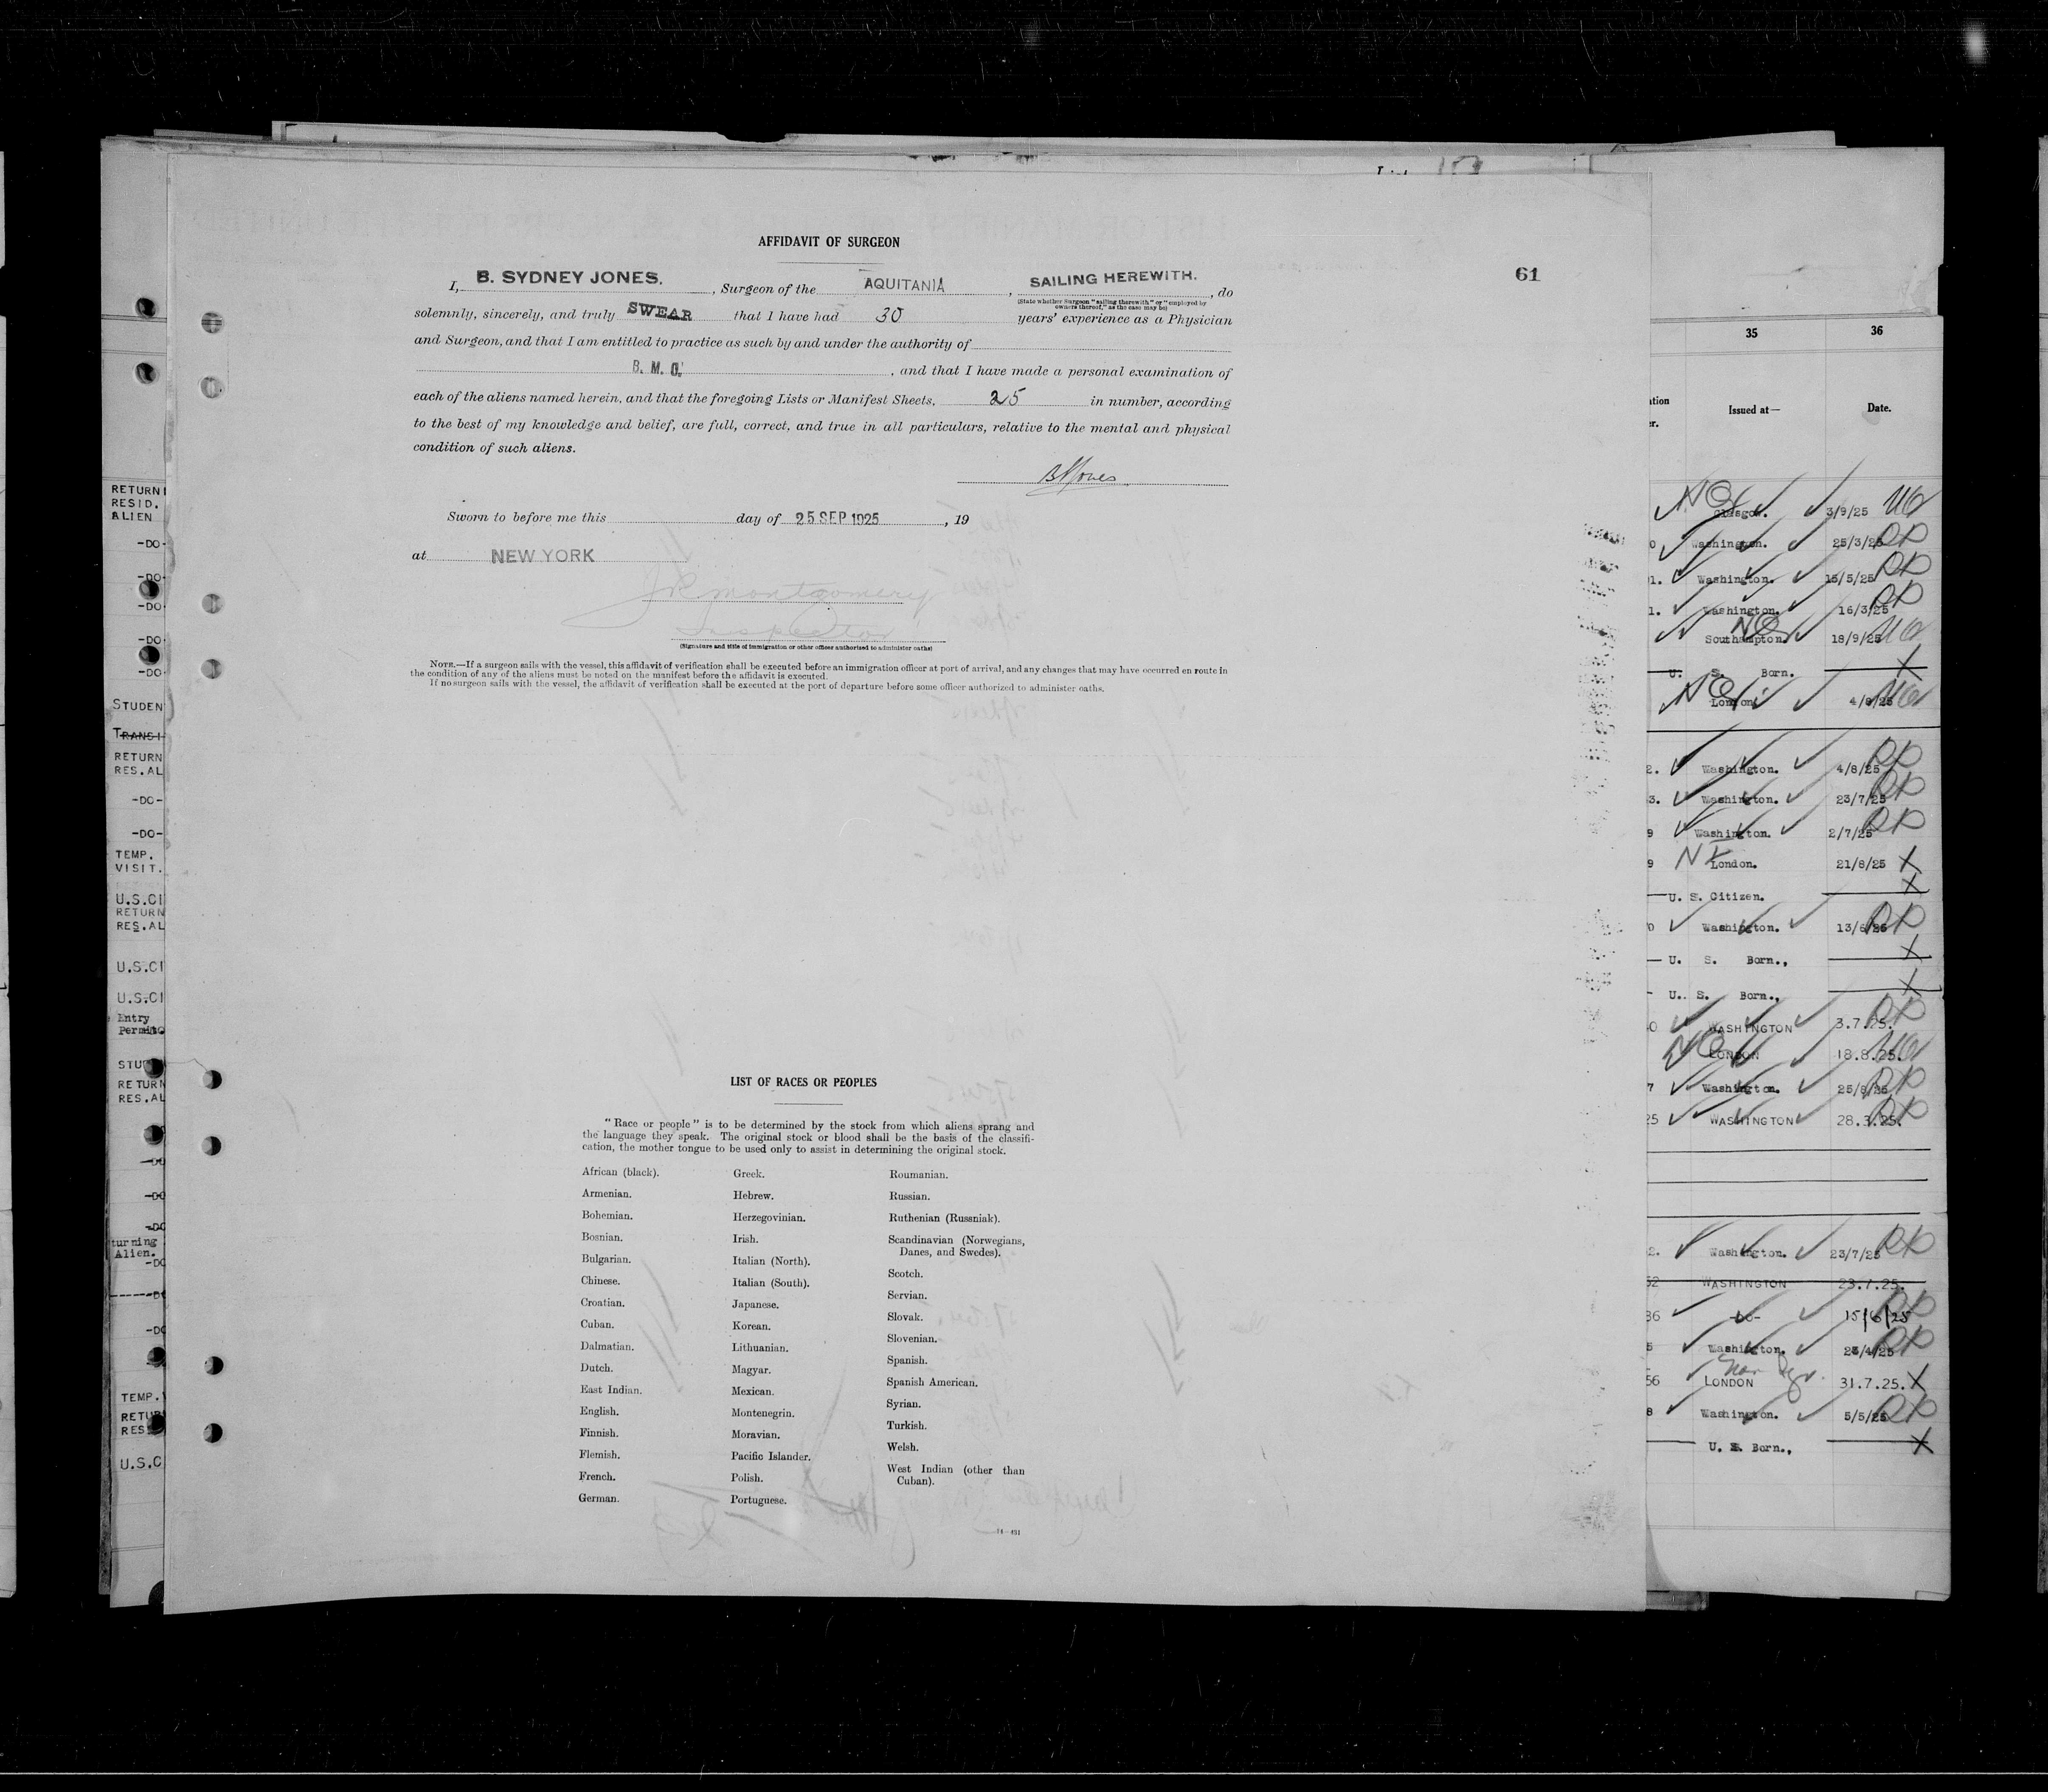 AFFIDAVIT OF SURGEON
61
I, B. SYDNEY JONES. , Surgeon of the AQUITANIA , SAILING HEREWITH. , do
(State whether Surgeon "sailing therewith" or "employed by
owners thereof," as the case may be)
solemnly, sincerely, and truly SWEAR that I have had 30 years' experience as a Physician
and Surgeon, and that I am entitled to practice as such by and under the authority of
B. M. C. , and that I have made a personal examination of
each of the aliens named herein, and that the foregoing Lists or Manifest Sheets, 25 in number, according
to the best of my knowledge and belief, are full, correct, and true in all particulars, relative to the mental and physical
condition of such aliens.
BSJones
Sworn to before me this day of 25 SEP 1925 , 19
at NEW YORK
JR Montgomery
Inspector
(Signature and title of immigration or other officer authorized to administer oaths)
NOTE.—If a surgeon sails with the vessel, this affidavit of verification shall be executed before an immigration officer at port of arrival, and any changes that may have occurred en route in
the condition of any of the aliens must be noted on the manifest before the affidavit is executed.
If no surgeon sails with the vessel, the affidavit of verification shall be executed at the port of departure before some officer authorized to administer oaths.
LIST OF RACES OR PEOPLES
"Race or people" is to be determined by the stock from which aliens sprang and
the language they speak. The original stock or blood shall be the basis of the classifi-
cation, the mother tongue to be used only to assist in determining the original stock.
African (black).
Armenian.
Bohemian.
Bosnian.
Bulgarian.
Chinese.
Croatian.
Cuban.
Dalmatian.
Dutch.
East Indian.
English.
Finnish.
Flemish.
French.
German.
Greek.
Hebrew.
Herzegovinian.
Irish.
Italian (North).
Italian (South).
Japanese.
Korean.
Lithuanian.
Magyar.
Mexican.
Montenegrin.
Moravian.
Pacific Islander.
Polish.
Portuguese.
Roumanian.
Russian.
Ruthenian (Russniak).
Scandinavian (Norwegians,
Danes, and Swedes).
Scotch.
Servian.
Slovak.
Slovenian.
Spanish.
Spanish American.
Syrian.
Turkish.
Welsh.
West Indian (other than
Cuban).
RETURN
RESID.
ALIEN
-DO-
-DO-
-DO-
-DO-
-DO-
STUDEN
TRANSI
RETURN
RES.AL
-DO-
-DO-
TEMP.
VISIT.
U.S.CI
RETURN
RES.AL
U.S.CI
U.S.CI
Entry
Permit
STU
RETURN
RES.AL
-DO
-DO
-DO
turning
Alien.
-DO
-DO
-DO
TEMP.
RETUR
RES
U.S.C
35 36
Issued at— Date.
Glasgow. 3/9/25
Washington. 25/3/25
Washington. 15/5/25
Washington. 16/3/25
Southampton. 18/9/25
U. S. Born.
London. 4/9/25
Washington. 4/8/25
Washington. 23/7/25
Washington. 2/7/25
London. 21/8/25
U. S. Citizen.
Washington. 13/6/25
U. S. Born.,
U. S. Born.,
WASHINGTON 3.7.25.
LONDON 18.8.25.
Washington. 25/8/25
WASHINGTON 28.3.25.
Washington. 23/7/25
WASHINGTON 23.7.25.
-do- 15/6/25
Washington. 23/4/25
LONDON 31.7.25.
Washington. 5/5/25
U. S. Born.,